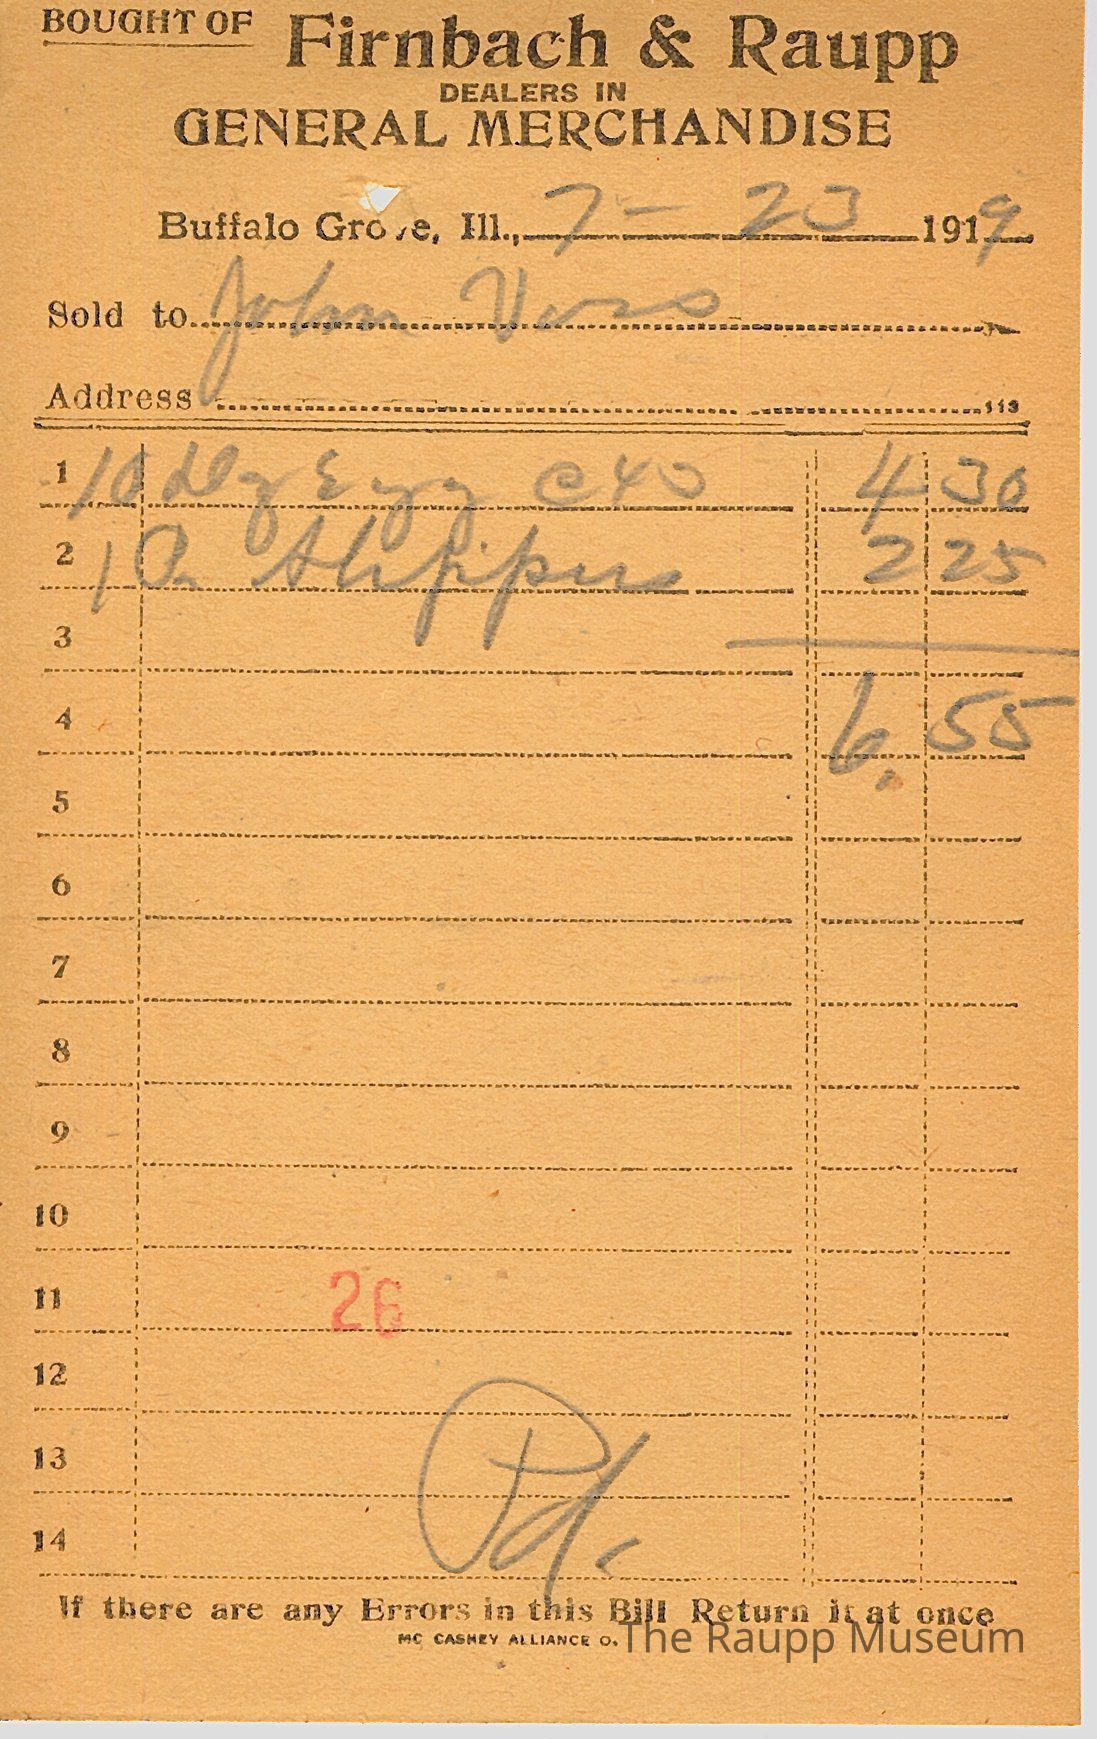 BOUGHT OF Firnbach & Raupp
DEALERS IN
GENERAL MERCHANDISE
Buffalo Grove, Ill., 7 - 23 1919
Sold to John Voss
Address 113
1 10 Dz Egg @ 40 4 30
2 1 Pr Slippers 2 25
3
4 6. 55
5
6
7
8
9
10
11 26
12
13 Pd.
14
If there are any Errors in this Bill Return it at once
MC CASKEY ALLIANCE O.
The Raupp Museum